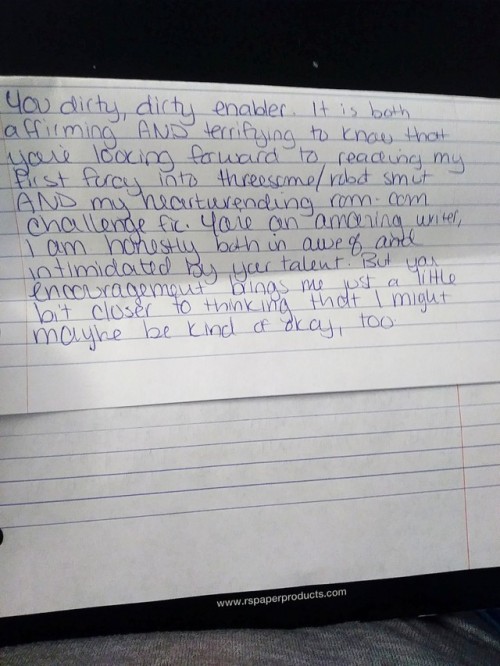 You dirty, dirty enabler. It is both
affirming AND terrifying to know that
you're looking forward to reading my
first foray into threesome/robot smut
AND my heartwrending rom-com
challenge fic. You're an amazing writer,
I am honestly both in awe of, and
intimidated by your talent. But your
encouragement brings me just a little
bit closer to thinking that I might
maybe be kind of okay, too
www.rspaperproducts.com